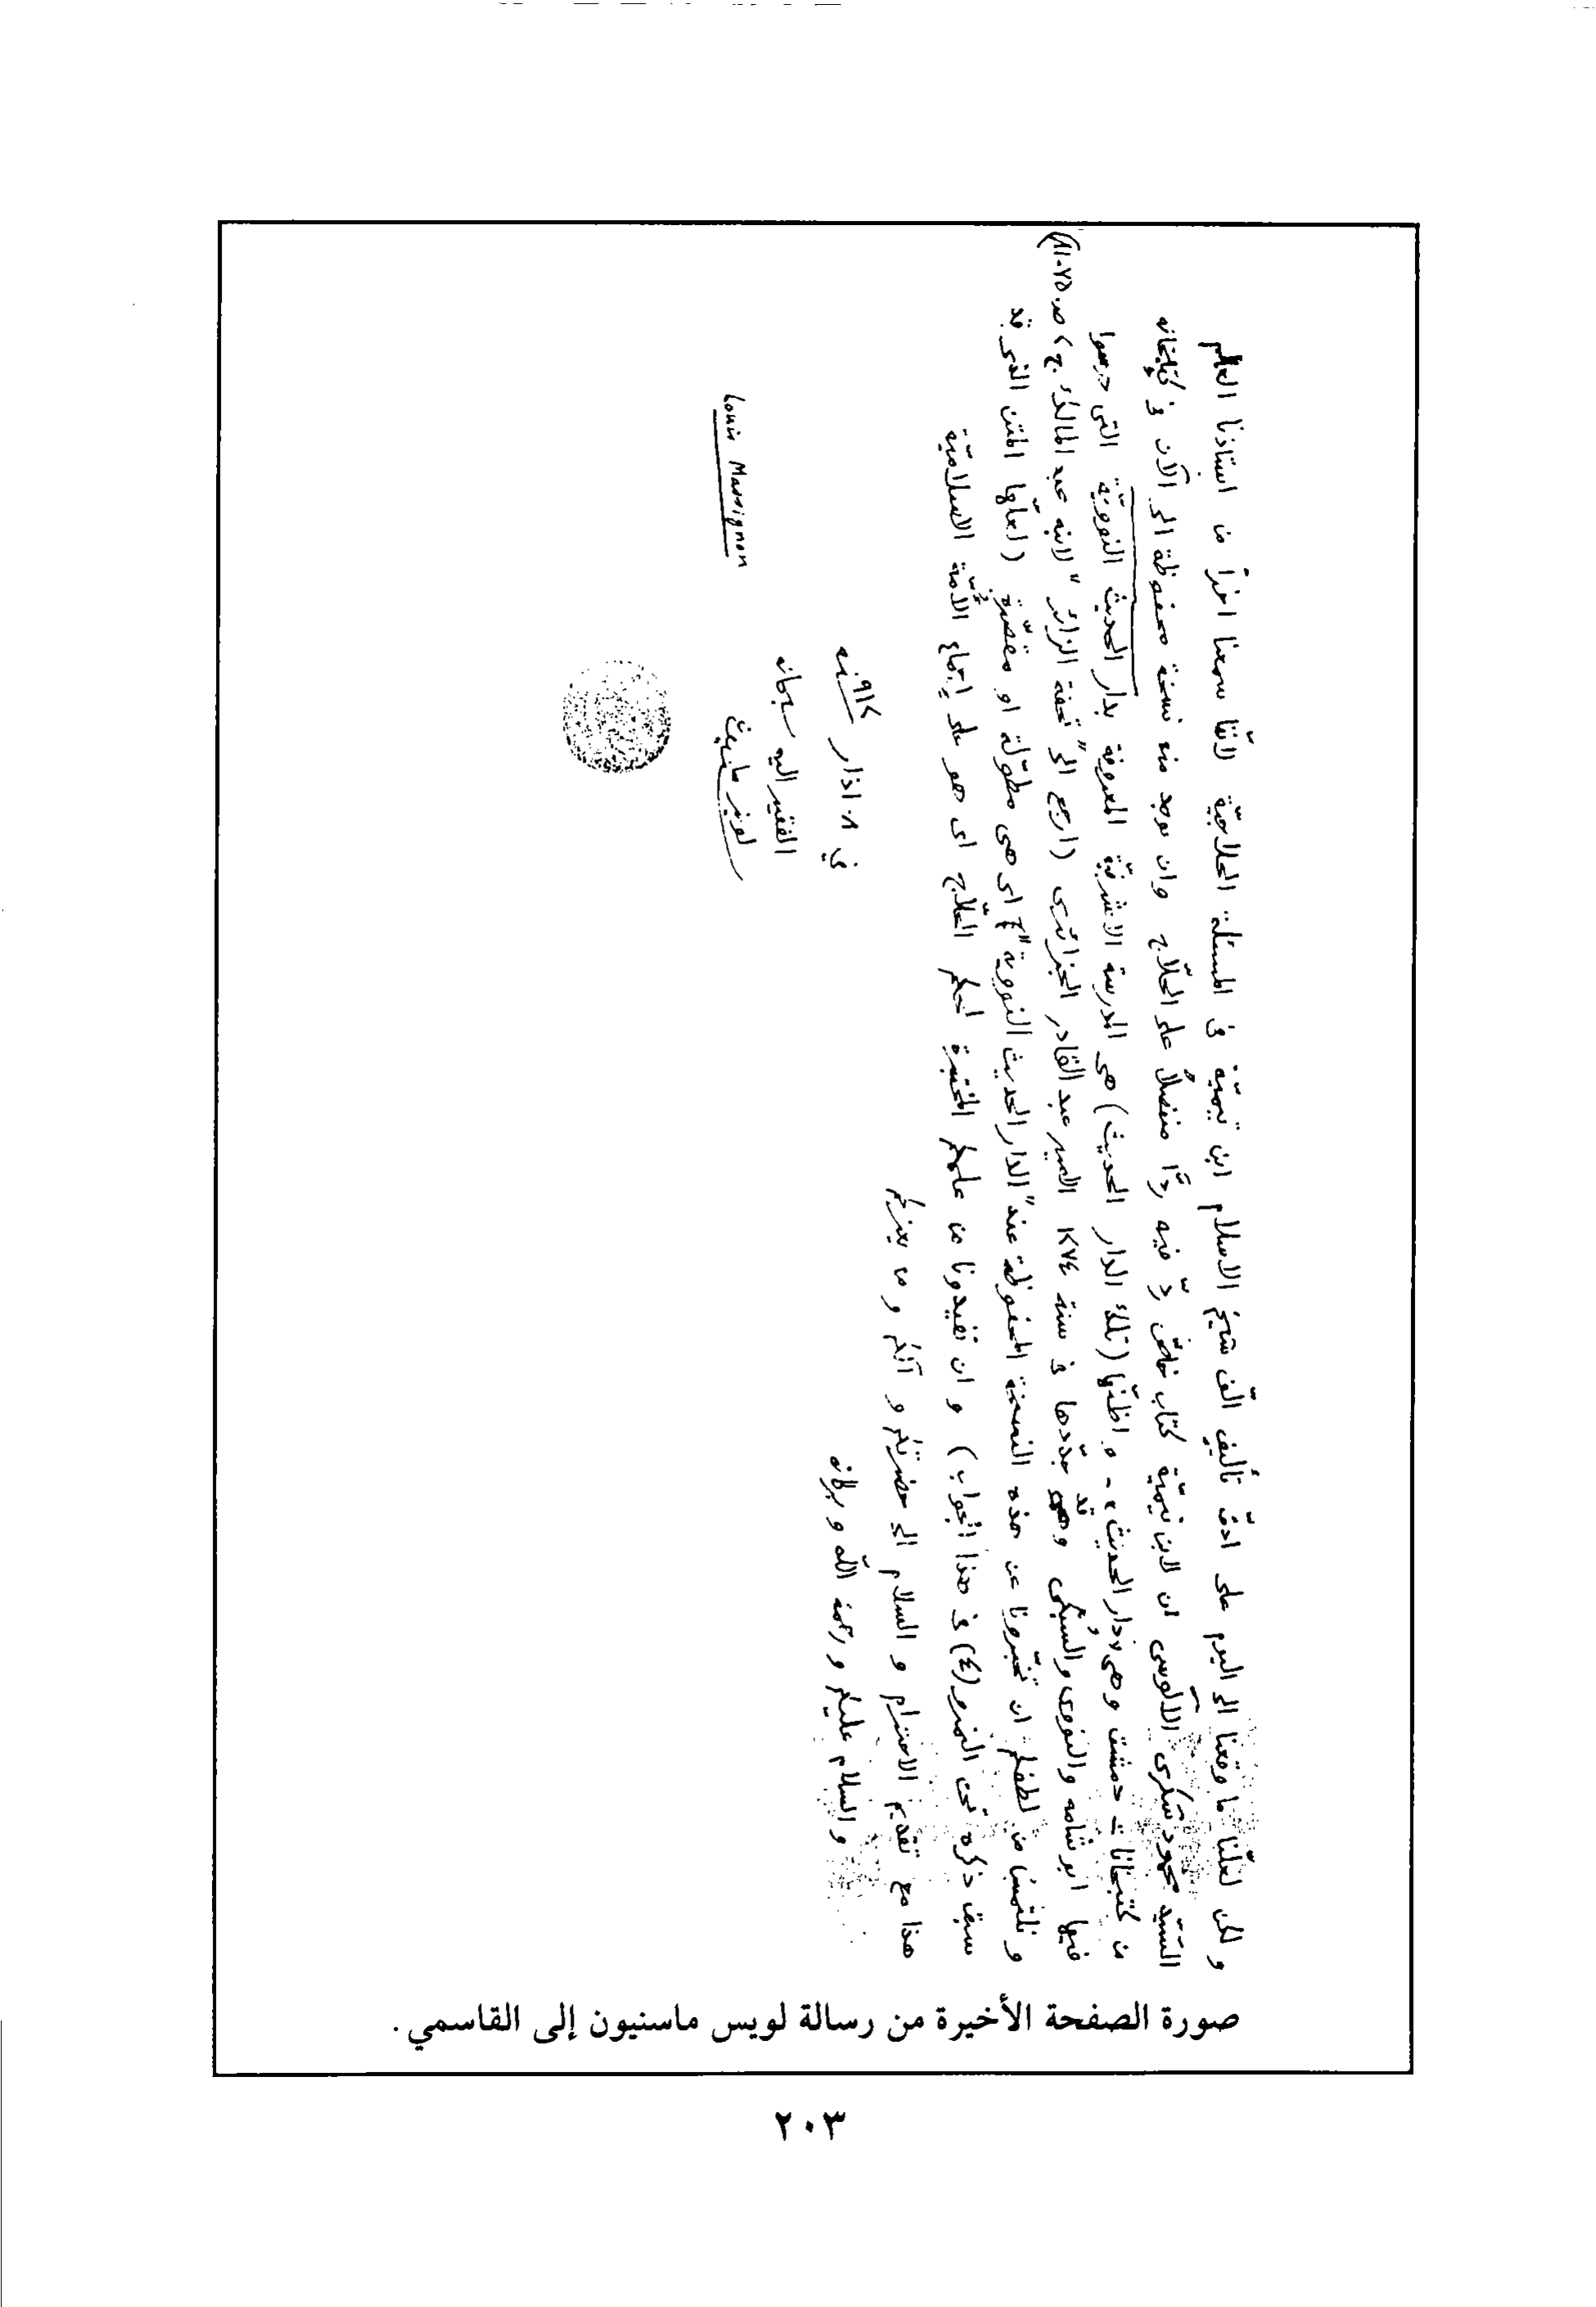 و لكن لعلّنا ما وقعنا الى اليوم على ادقّ تأليفٍ الّف شيخ الاسلام ابن تيميّة فى المسئلة الحلاجيّة لانّنا سمعنا اخرًا من استاذنا العالم
السيّد محمود شكرى الآلوسى ان لابن تيميّة كتاب خاصّ ردّ فيه ردًّا منفصلًا على الحلّاج وان يوجد منه نسخة محفوظة الى الآن فى كتبخانه
من كتبخانات دمشق وهى دار الحديث - و اظنّها (تلك الدار الحديث) هى المدرسة الاشرفيّة المعروفة بدار الحديث النوويّة التى درسوا
فيها ابو شامه والنووى والسُبكى و قد جدّدها فى سنة ١٢٧٤ الامير عبد القادر الجزائرى (ارجع الى "تحفة الزائر" لابنه ج ٢ ص ٧٥-٨١)
و نلتمس من لطفكم ان تخبّرونا عن هذه النسخة المحفوظة عند "الدار الحديث النووية" اى هى مطوّلة او مقصّرة (لعلّها المتن الذى قد
سبق ذكره تحت النمرو (٤) فى هذا الجواب) و ان تفيدونا من علمكم لحكم الحلّاج اى هو على إجماع الأمّة الاسلاميّة
هذا مع تقديم الاحترام و السلام الى حضرتكم و آلكم و من يعزّكم
و السلام عليكم و رحمة الله و بركاته
في ٨ اذار سنه ٩١٢
الفقير اليه سبحانه
لويز ماسنيون
Louis Massignon
صورة الصفحة الأخيرة من رسالة لويس ماسنيون إلى القاسمي .
٢٠٣